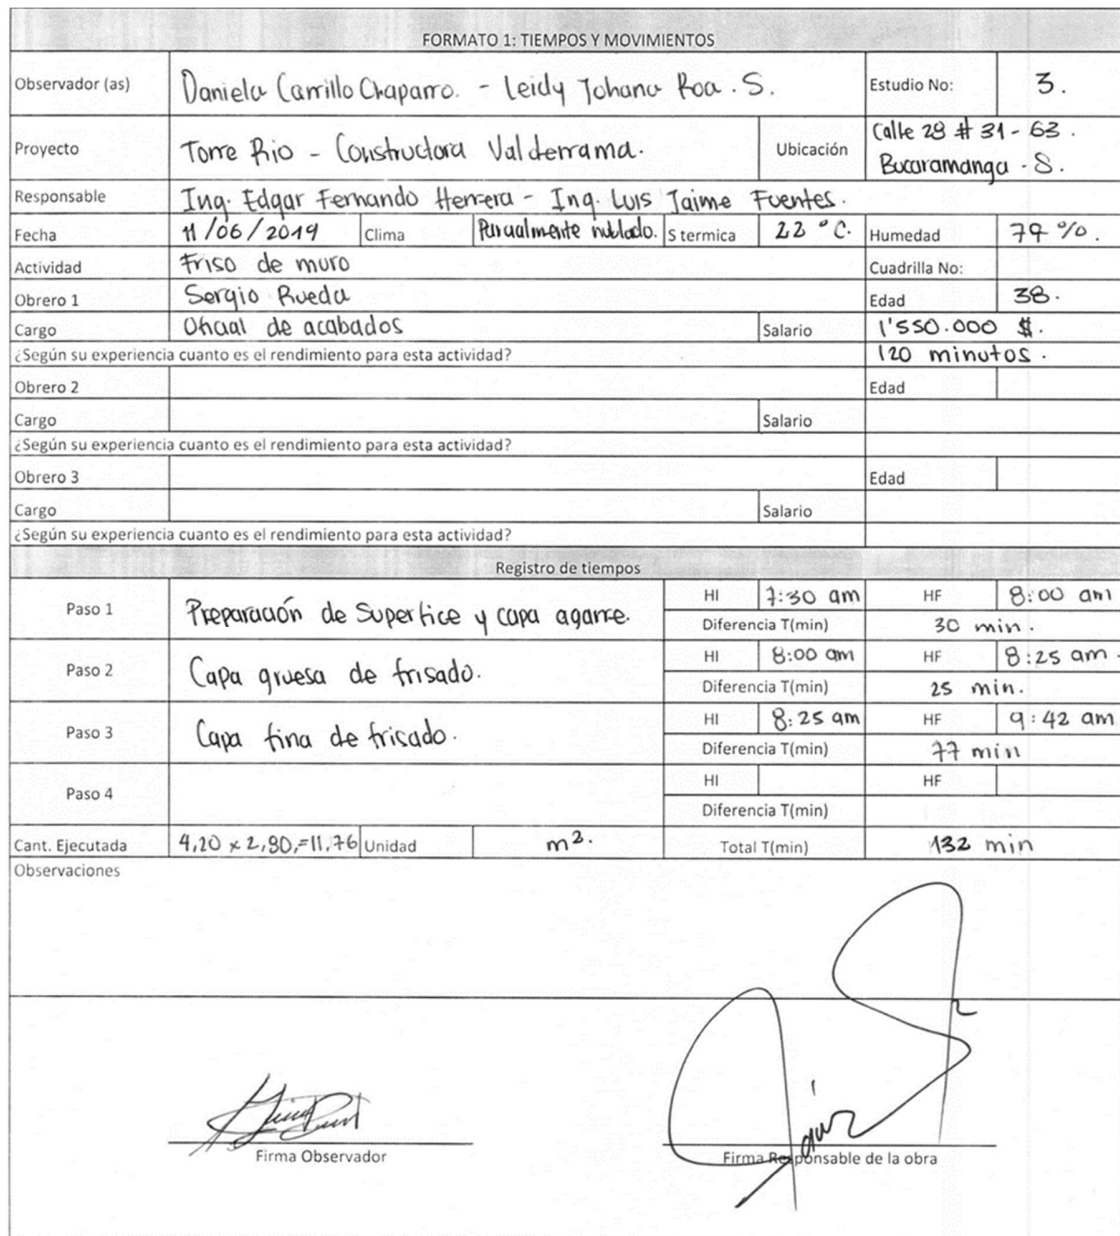 FORMATO 1: TIEMPOS Y MOVIMIENTOS
Observador (as) Daniela Carrillo Chaparro. - Leidy Johana Roa. S. Estudio No: 3.
Proyecto Torre Rio - Constructora Valderrama. Ubicación Calle 28 # 31 - 63. Bucaramanga - S.
Responsable Ing. Edgar Fernando Herrera - Ing. Luis Jaime Fuentes.
Fecha 11/06/2019 Clima Parcialmente nublado. S termica 22 °C. Humedad 79 %.
Actividad Friso de muro Cuadrilla No:
Obrero 1 Sergio Rueda Edad 38.
Cargo Oficial de acabados Salario 1'550.000 $.
¿Según su experiencia cuanto es el rendimiento para esta actividad? 120 minutos.
Obrero 2 Edad
Cargo Salario
¿Según su experiencia cuanto es el rendimiento para esta actividad?
Obrero 3 Edad
Cargo Salario
¿Según su experiencia cuanto es el rendimiento para esta actividad?
Registro de tiempos
Paso 1 Preparación de Superfice y capa agarre. HI 7:30 am HF 8:00 am
Diferencia T(min) 30 min.
Paso 2 Capa gruesa de frisado. HI 8:00 am HF 8:25 am.
Diferencia T(min) 25 min.
Paso 3 Capa fina de frisado. HI 8:25 am HF 9:42 am
Diferencia T(min) 77 min
Paso 4 HI HF
Diferencia T(min)
Cant. Ejecutada 4,20 x 2,80,=11,76 Unidad m2. Total T(min) 132 min
Observaciones
Firma Observador Firma Responsable de la obra